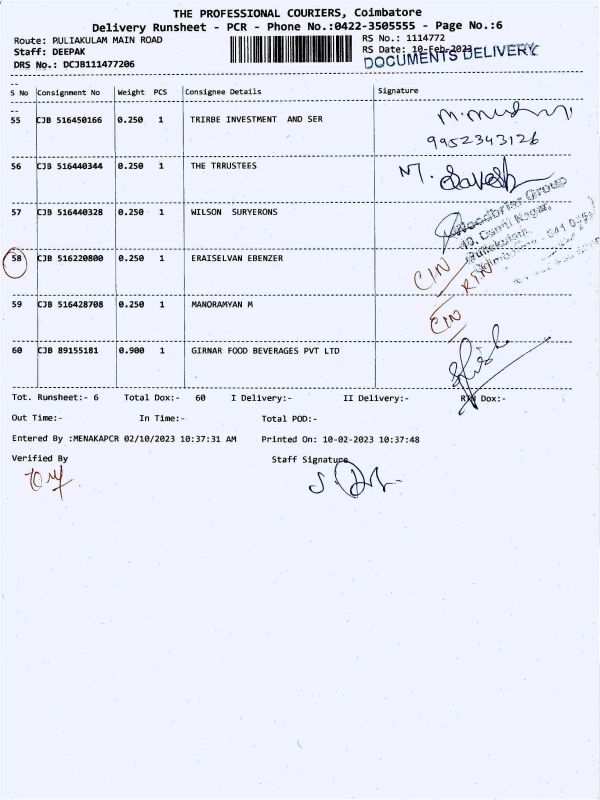 THE PROFESSIONAL COURIERS, Coimbatore
Delivery Runsheet - PCR - Phone No.:0422-3505555 - Page No.:6
Route: PULIAKULAM MAIN ROAD RS No.: 1114772
Staff: DEEPAK RS Date: 10-Feb-2023
DRS No.: DCJB111477206 DOCUMENTS DELIVERY
S No Consignment No Weight PCS Consignee Details Signature
55 CJB 516450166 0.250 1 TRIRBE INVESTMENT AND SER
9952343126
56 CJB 516440344 0.250 1 THE TRRUSTEES
57 CJB 516440328 0.250 1 WILSON SURYERONS
58 CJB 516220800 0.250 1 ERAISELVAN EBENZER CIN RTN
59 CJB 516428708 0.250 1 MANORAMYAN M CIN
60 CJB 89155181 0.900 1 GIRNAR FOOD BEVERAGES PVT LTD
Tot. Runsheet:- 6 Total Dox:- 60 I Delivery:- II Delivery:- RTN Dox:-
Out Time:- In Time:- Total POD:-
Entered By :MENAKAPCR 02/10/2023 10:37:31 AM Printed On: 10-02-2023 10:37:48
Verified By Staff Signature